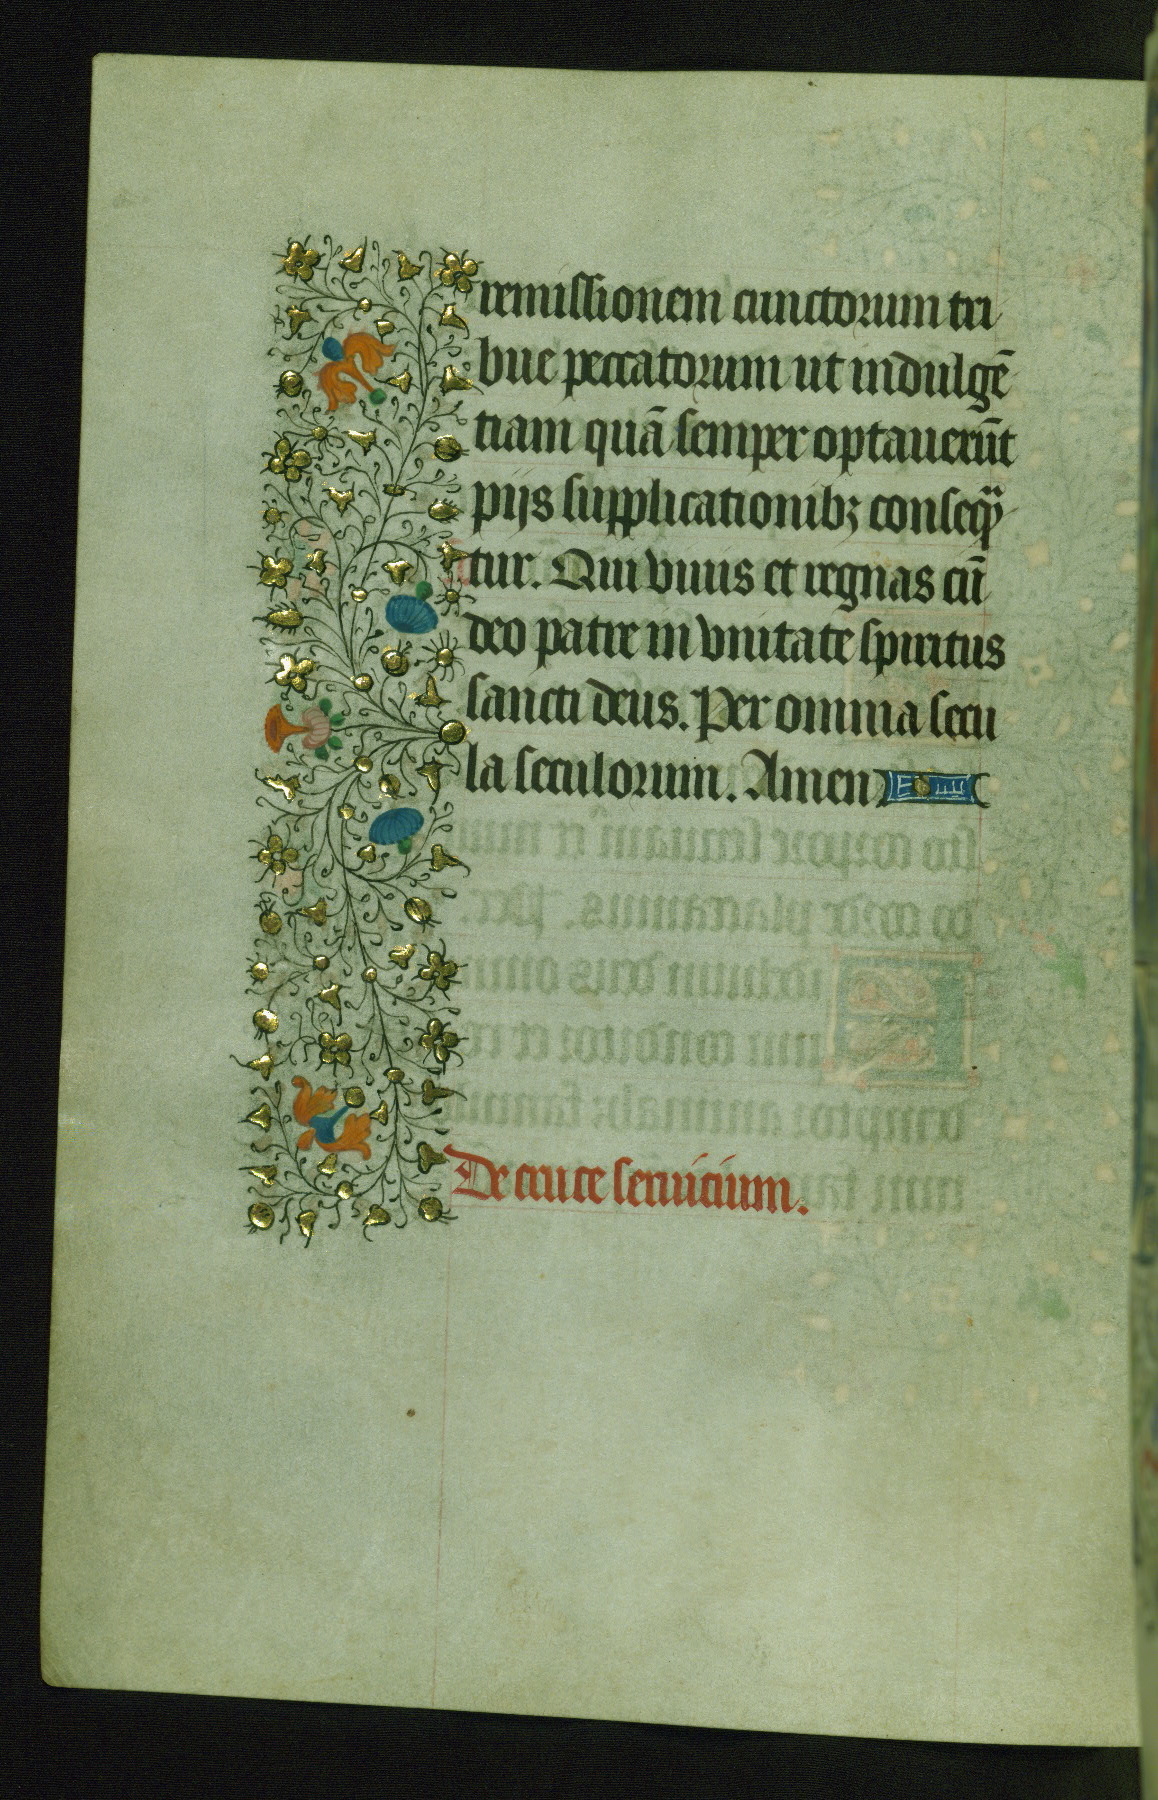 remissionem cunctorum tri
bue peccatorum ut indulgē
tiam quā semper optauerūt
pijs supplicationibꝫ conseqͣ
tur. Qui viuis et regnas cū
deo patre in vnitate spiritus
sancti deus. Per omnia secu
la seculorum. Amen
De cruce seruicium.